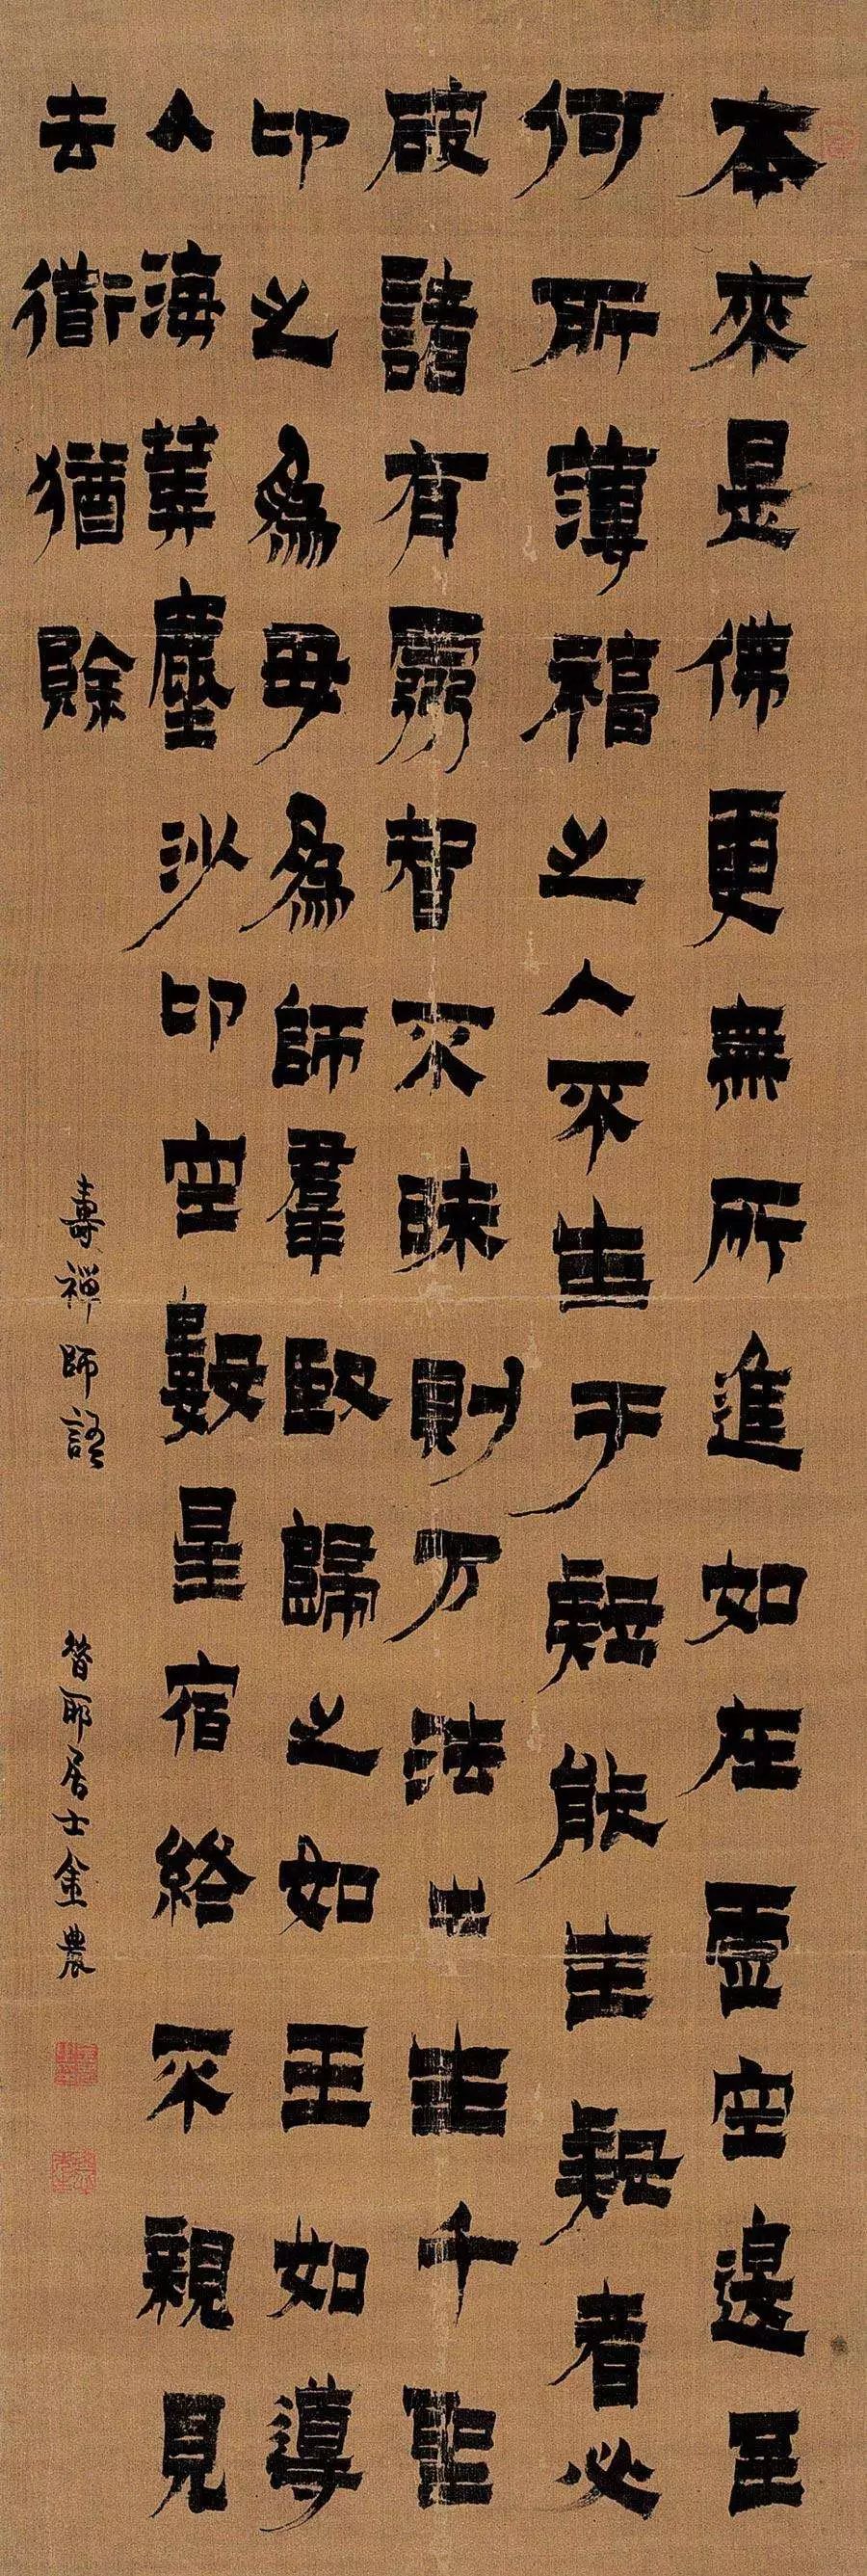 本來是佛更無所進如在虛空退至
何所薄福之人不生于疑能生疑者必
破諸有靈智不昧則万法出生千聖
印之為母為師羣臤歸之如王如導
人海算塵沙印空數星宿終不親見
去衜猶賒
壽禪師語 昔耶居士金農